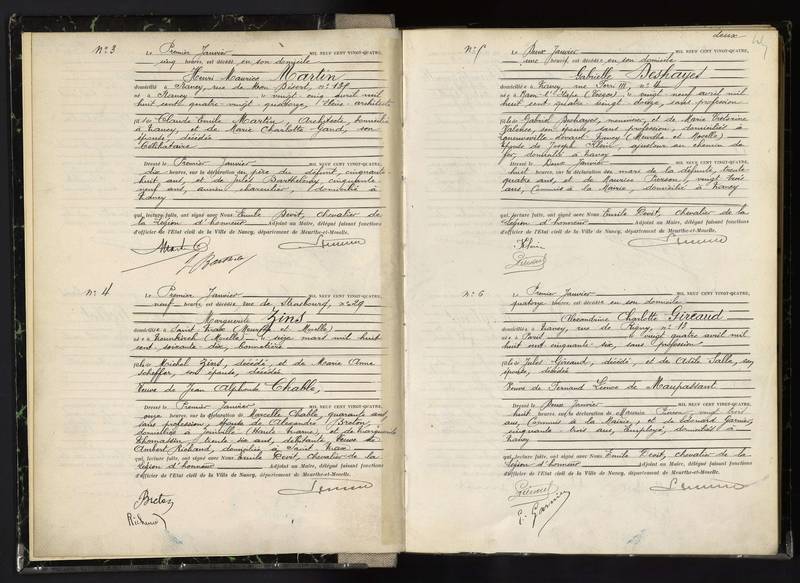 N° 3
Le Premier Janvier MIL NEUF CENT VINGT-QUATRE,
cinq heures, est décédé en son domicile
Henri Maurice Martin
domicilié à Nancy, rue de Mon Désert, n° 139
né à Nancy le vingt cinq avril mil
huit cent quatre vingt quatorze, Elève architecte
fils de Claude Emile Martin, Architecte, domicilié
à Nancy, et de Marie Charlotte Gand, son
épouse, décédée
Célibataire
Dressé le Premier Janvier MIL NEUF CENT VINGT-QUATRE,
dix heures, sur la déclaration du père du défunt, cinquante
huit ans, et de Jules Barthelemy, cinquante
neuf ans, ancien charcutier, domicilié à
Nancy
qui, lecture faite, ont signé avec Nous Emile Devit, chevalier de
la Légion d'honneur Adjoint au Maire, délégué faisant fonctions
d'officier de l'Etat civil de la Ville de Nancy, département de Meurthe-et-Moselle.
N° 4
Le Premier Janvier MIL NEUF CENT VINGT-QUATRE,
neuf heures, est décédée rue de Strasbourg, n° 29
Marguerite Zins
domiciliée à Saint Max (Meurthe et Moselle)
née à Neunkirch (Moselle) le seize mars mil huit
cent, soixante dix,
fille de Michel Zins, décédé, et de Marie Anne
Scheffer, son épouse, décédée
Veuve de Jean Alphonse Chable,
Dressé le Premier Janvier MIL NEUF CENT VINGT-QUATRE,
onze heures, sur la déclaration de Marcelle Chable, quarante ans,
sans profession, épouse de Alexandre Breton,
domiciliée à Joinville (Haute Marne), et de Marguerite
Thomassin, trente six ans, veuve de
Richard, domiciliée à Saint Max
qui, lecture faite, ont signé avec Nous Emile Devit, Chevalier de la
Légion d'honneur Adjoint au Maire, délégué faisant fonctions
d'officier de l'Etat civil de la Ville de Nancy, département de Meurthe-et-Moselle.
Breton
Richard
deux
N° 5
Le Deux Janvier MIL NEUF CENT VINGT-QUATRE,
une heure, est décédée en son domicile
Gabrielle Deshayes
domiciliée à Nancy, rue Ferri III, n° 4
née à Raon l'Etape (Vosges) le vingt neuf avril mil
huit cent quatre vingt douze, sans profession
fille de Gabriel Deshayes, manœuvre, et de Marie Victorine
Valence, son épouse, sans profession, domiciliés à
devant Nancy (Meurthe et Moselle)
Epouse de Joseph Klein, ajusteur au chemin de
fer, domicilié à Nancy
Dressé le Deux Janvier MIL NEUF CENT VINGT-QUATRE,
huit heures, sur la déclaration du mari de la défunte, trente
quatre ans, et de Maurice Pierson, vingt trois
ans, Commis à la Mairie, domicilié à Nancy
qui, lecture faite, ont signé avec Nous Emile Devit, chevalier de la
Légion d'honneur Adjoint au Maire, délégué faisant fonctions
d'officier de l'Etat civil de la Ville de Nancy, département de Meurthe-et-Moselle.
Klein
N° 6
Le Premier Janvier MIL NEUF CENT VINGT-QUATRE,
quatorze heures, est décédée en son domicile
Alexandrine Charlotte Gireaud
domiciliée à Nancy, rue de Rigny, n° 13
née à Paris le vingt quatre avril mil
huit cent cinquante six, sans profession
fille de Jules Gireaud, décédé, et de Adèle Salla, son
épouse, décédée
Veuve de Fernand Leonce de Maupassant
Dressé le Deux Janvier MIL NEUF CENT VINGT-QUATRE,
huit heures, sur la déclaration de Maurice Pierson, vingt trois
ans, Commis à la Mairie, et de Edouard Garnier,
cinquante trois ans, employé, domiciliés à
Nancy
qui, lecture faite, ont signé avec Nous Emile Devit, chevalier de la
Légion d'honneur Adjoint au Maire, délégué faisant fonctions
d'officier de l'Etat civil de la Ville de Nancy, département de Meurthe-et-Moselle.
E. Garnier